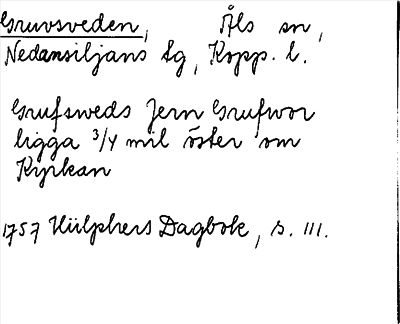 Gruvsveden, Åls sn,
Nedansiljans fg, Kopp. l.
Grufsweds Jern Grufwor
ligga 3/4 mil öster om
Kyrkan
1757 Hülphers Dagbok, s. 111.